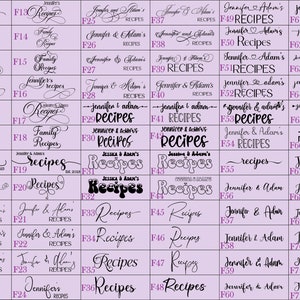 F13 Jennifer's Recipes F25 Jennifer & Adam's Recipes F37 Jennifer & Adam's Recipes F49 Jennifer & Adam's RECIPES
F14 Family Recipes F26 Jennifer & Adam's RECIPES F38 Jennifer & Adam's RECIPES F50 Jennifer & Adam's Recipes
F15 Recipes F27 Jennifer & Adam's RECIPES F39 Jennifer & Adam's RECIPES F51 Jennifer & Adam's RECIPES
F16 Recipes F28 Jennifer & Adam's RECIPES F40 Jennifer & Adam's RECIPES F52 Jennifer & Adam's RECIPES
F17 Recipes F29 Jennifer & Adam's recipes F41 Jennifer & Adam's recipes F53 Jennifer & Adam's recipes
F18 Family Recipes F30 recipes F42 recipes F54 Jennifer & Adam's RECIPES
F19 recipes F31 Jessica & Adam's Recipes F43 Jessica & Adam's Recipes F55 recipes
F20 Recipes F32 Jessica & Adam's Recipes F44 Recipes F56 Jennifer & Ad
F21 Jennifer & Adam's RECIPES F33 Recipes F45 Recipes F57 Jennifer & Ad
F22 Jennifer & Adam's RECIPES F34 Recipes F46 Recipes F58 Jennifer & Adam
F23 Jennifer & Adam's RECIPES F35 Recipes F47 Recipes F59 Jennifer & Adam
F24 Jennifer's RECIPES F36 Recipes F48 Recipes F60 Jennifer & Ad